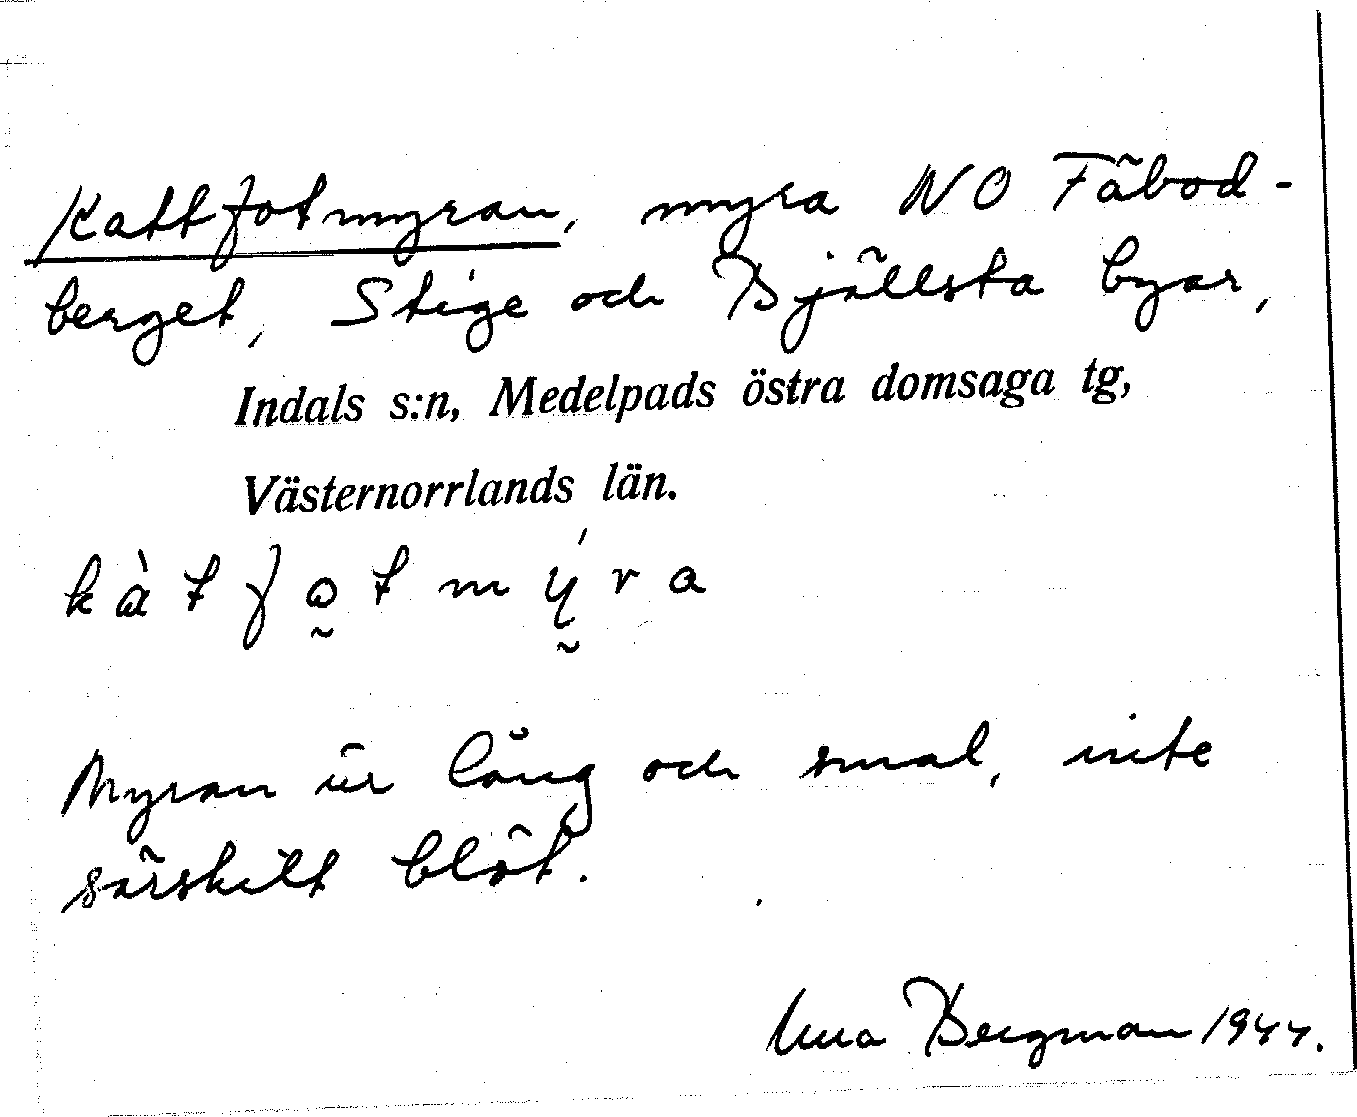 Kattfotmyran, myra NO Fäbod-
berget, Stige och Bjällsta byar,
Indals s:n, Medelpads östra domsaga tg,
Västernorrlands län.
kàtfo̰tmý̰ra
Myran är lång och smal, inte
särskilt blöt.
Bergman 1944.